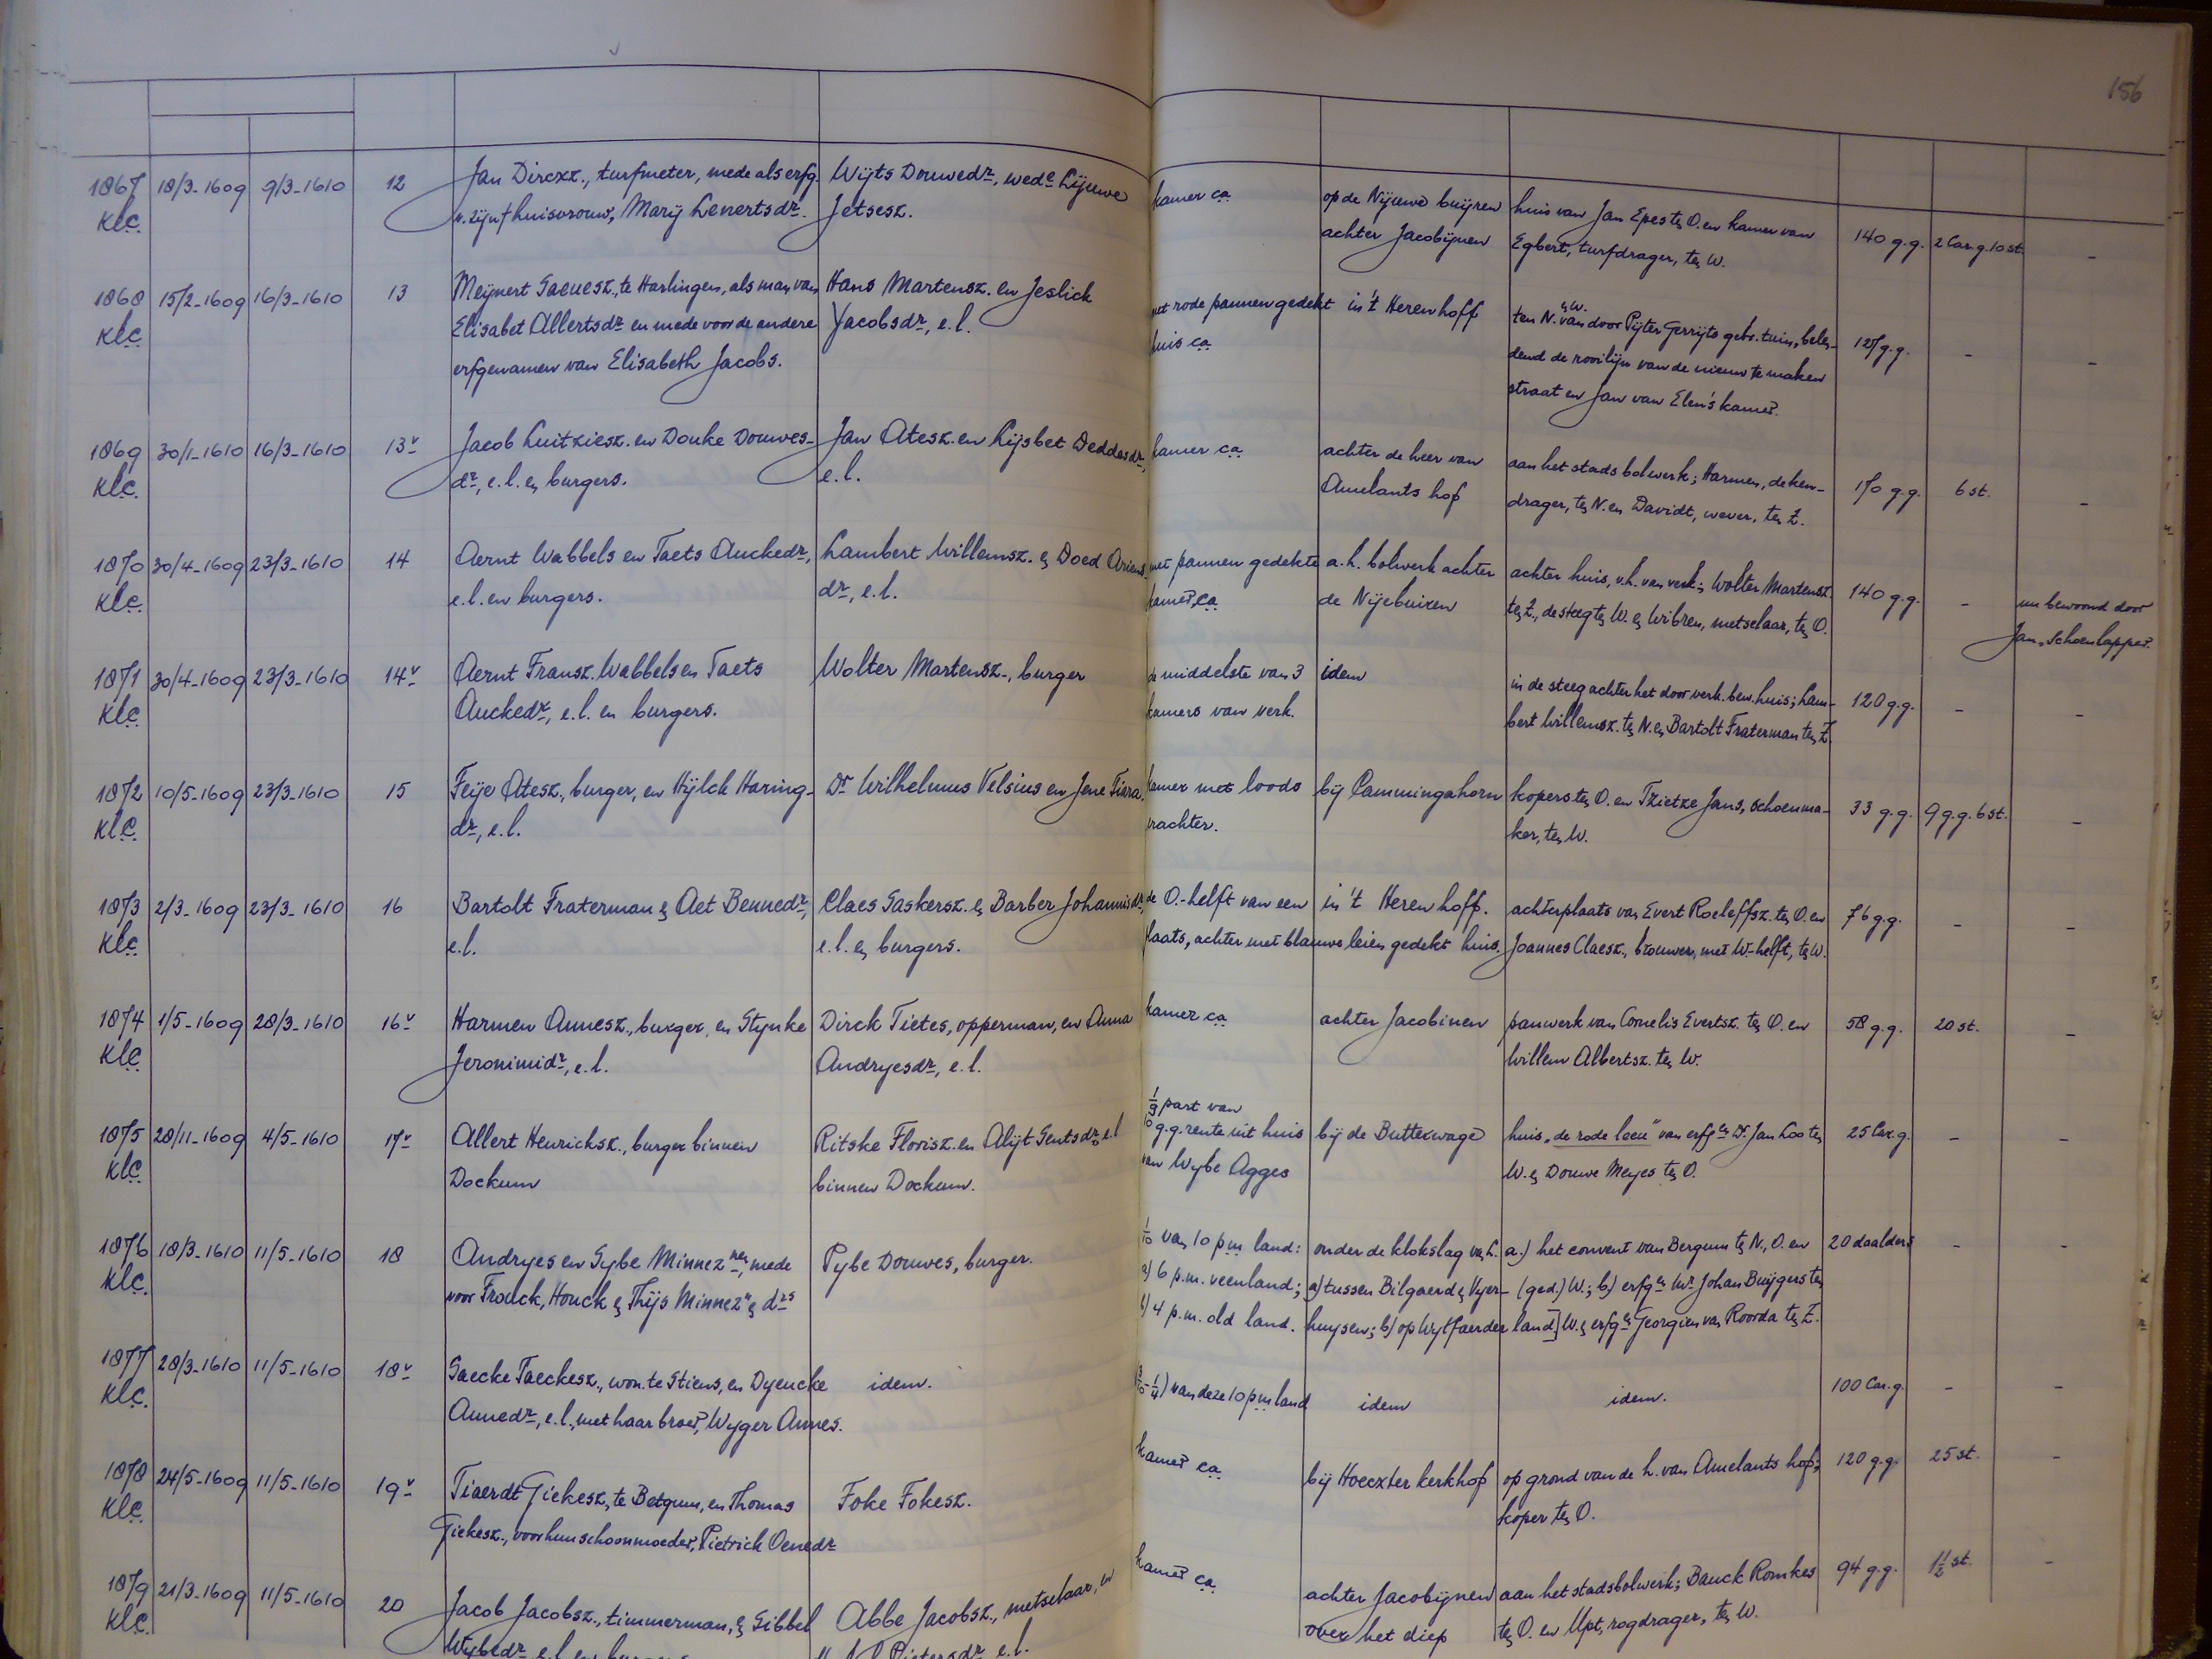 156
1867 18/3-1609 9/3-1610 12 Jan Dircxz., turfmeter, mede als erfg. Wijts Douwedr, wede Lijuwe kamer ca op de Nijuwe buijren huis van Jan Epes ten O. en kamer van 140 g.g. 2 Car.g. 10 st. -
klc. v. zijn huisvrouw, Marij Lenertsdr. Jetsesz. achter Jacobijnen Egbert, turfdrager, ten W.
1868 15/2-1609 16/3-1610 13 Meijnert Saeuesz., te Harlingen, als man van Hans Martensz. en Jeslick met rode pannen gedekt in 't Herenhoff ten N. en W. van door Pijter Gerrijts gebr. tuin, belen- 127 g.g. - -
klc. Elisabet Allertsdr en mede voor de andere Jacobsdr, e.l. huis ca dend de rooilijn van de nieuw te maken
erfgenamen van Elisabeth Jacobs. straat en Jan van Elen's kamer.
1869 30/1-1610 16/3-1610 13v Jacob Luitziesz. en Douke Douwes- Jan Atesz. en Lijsbet Deddesdr, kamer ca achter de heer van aan het stadsbolwerk; Harmen, deken- 170 g.g. 6 st. -
klc. dr, e.l. en burgers. e.l. Amelants hof drager, ten N. en Davidt, wever, ten Z.
1870 30/4-1609 23/3-1610 14 Aernt Wabbels en Taets Auckedr, Lambert Willemsz. en Doed Ariens- met pannen gedekte a.h. bolwerk achter achter huis, v.h. van verk.; Wolter Martensz. 140 g.g. - nu bewoond door
klc. e.l. en burgers. dr, e.l. kamer, ca de Nijebuiren ten Z., de steeg ten W. en Wibren, metselaar, ten O. Jan, schoenlapper.
1871 30/4-1609 23/3-1610 14v Aernt Fransz. Wabbels en Taets Wolter Martensz., burger de middelste van 3 idem in de steeg achter het door verk. bew. huis; Lam- 120 g.g. - -
klc. Auckedr, e.l. en burgers. kamers van verk. bert Willemsz. ten N. en Bartolt Fraterman ten Z.
1872 10/5-1609 23/3-1610 15 Feije Atesz., burger, en Hijlck Haring- Dr Wilhelmus Velsius en Jene Tiara. kamer met loods bij Cammingahorn kopers ten O. en Tzietze Jans, schoenma- 33 g.g. 9 g.g. 6 st. -
klc. dr, e.l. erachter. ker, ten W.
1873 2/3-1609 23/3-1610 16 Bartolt Fraterman en Aet Bennedr, Claes Saskersz. en Barber Johannisdr, de O.-helft van een in 't Herenhoff. achterplaats van Evert Roeleffsz. ten O. en 76 g.g. - -
klc. e.l. e.l. en burgers. plaats, achter met blauwe leien gedekt huis. Joannes Claesz., brouwer, met W-helft, ten W.
1874 1/5-1609 28/3-1610 16v Harmen Annesz., burger, en Stynke Dirck Tietes, opperman, en Anna kamer ca achter Jacobinen panwerk van Cornelis Evertsz. ten O. en 58 g.g. 20 st. -
klc. Jeronimidr, e.l. Andryesdr, e.l. Willem Albertsz. ten W.
1875 28/11-1609 4/5-1610 17v Allert Henricksz., burger binnen Ritske Florisz. en Alijt Gentsdr, e.l. 1/9 part van 10 g.g. rente uit huis bij de Butterwage huis "de rode leeu" van erfgen Dr Jan Loo ten 25 Car.g. - -
klc. Dockum binnen Dockum. van Wybe Agges W. en Douwe Meyes ten O.
1876 18/3-1610 11/5-1610 18 Andryes en Sybe Minnezn, mede Pybe Douwes, burger. 1/10 van 10 pm land: onder de klokslag van L. a.) het convent van Bergum ten N., O. en 20 daalders - -
klc. voor Frouck, Houck en Thijs Minnezn en drs a) 6 p.m. veenland; a) tussen Bilgaerd en Vyer- (ged.) W.; b) erfgen Mr Johan Buijgers ten
b) 4 p.m. old land. huysen; b) op Wytfaerder land] W. en erfgen Georgien van Roorda ten Z.
1877 28/3-1610 11/5-1610 18v Saecke Taeckesz., won. te Stiens, en Dyeucke idem. (3/10-1/4) van deze 10 pm land idem idem. 100 Car.g. - -
klc. Annedr, e.l., met haar broer, Wyger Annes.
1878 24/5-1609 11/5-1610 19v Tiaerdt Giekesz., te Betgum, en Thomas Foke Fokesz. kamer ca bij Hoecxter kerkhof op grond van de h. van Amelants hof; 120 g.g. 25 st. -
klc. Giekesz., voor hun schoonmoeder, Pietrick Oenedr koper ten O.
1879 21/3-1609 11/5-1610 20 Jacob Jacobsz., timmerman, en Sibbel Abbe Jacobsz., metselaar, en kamer ca achter Jacobijnen aan het stadsbolwerk; Bauck Romkes 94 g.g. 1½ st. -
klc. Wybedr e.l. en burgers Pietersdr e.l. over het diep ten O. en Upt, rogdrager, ten W.